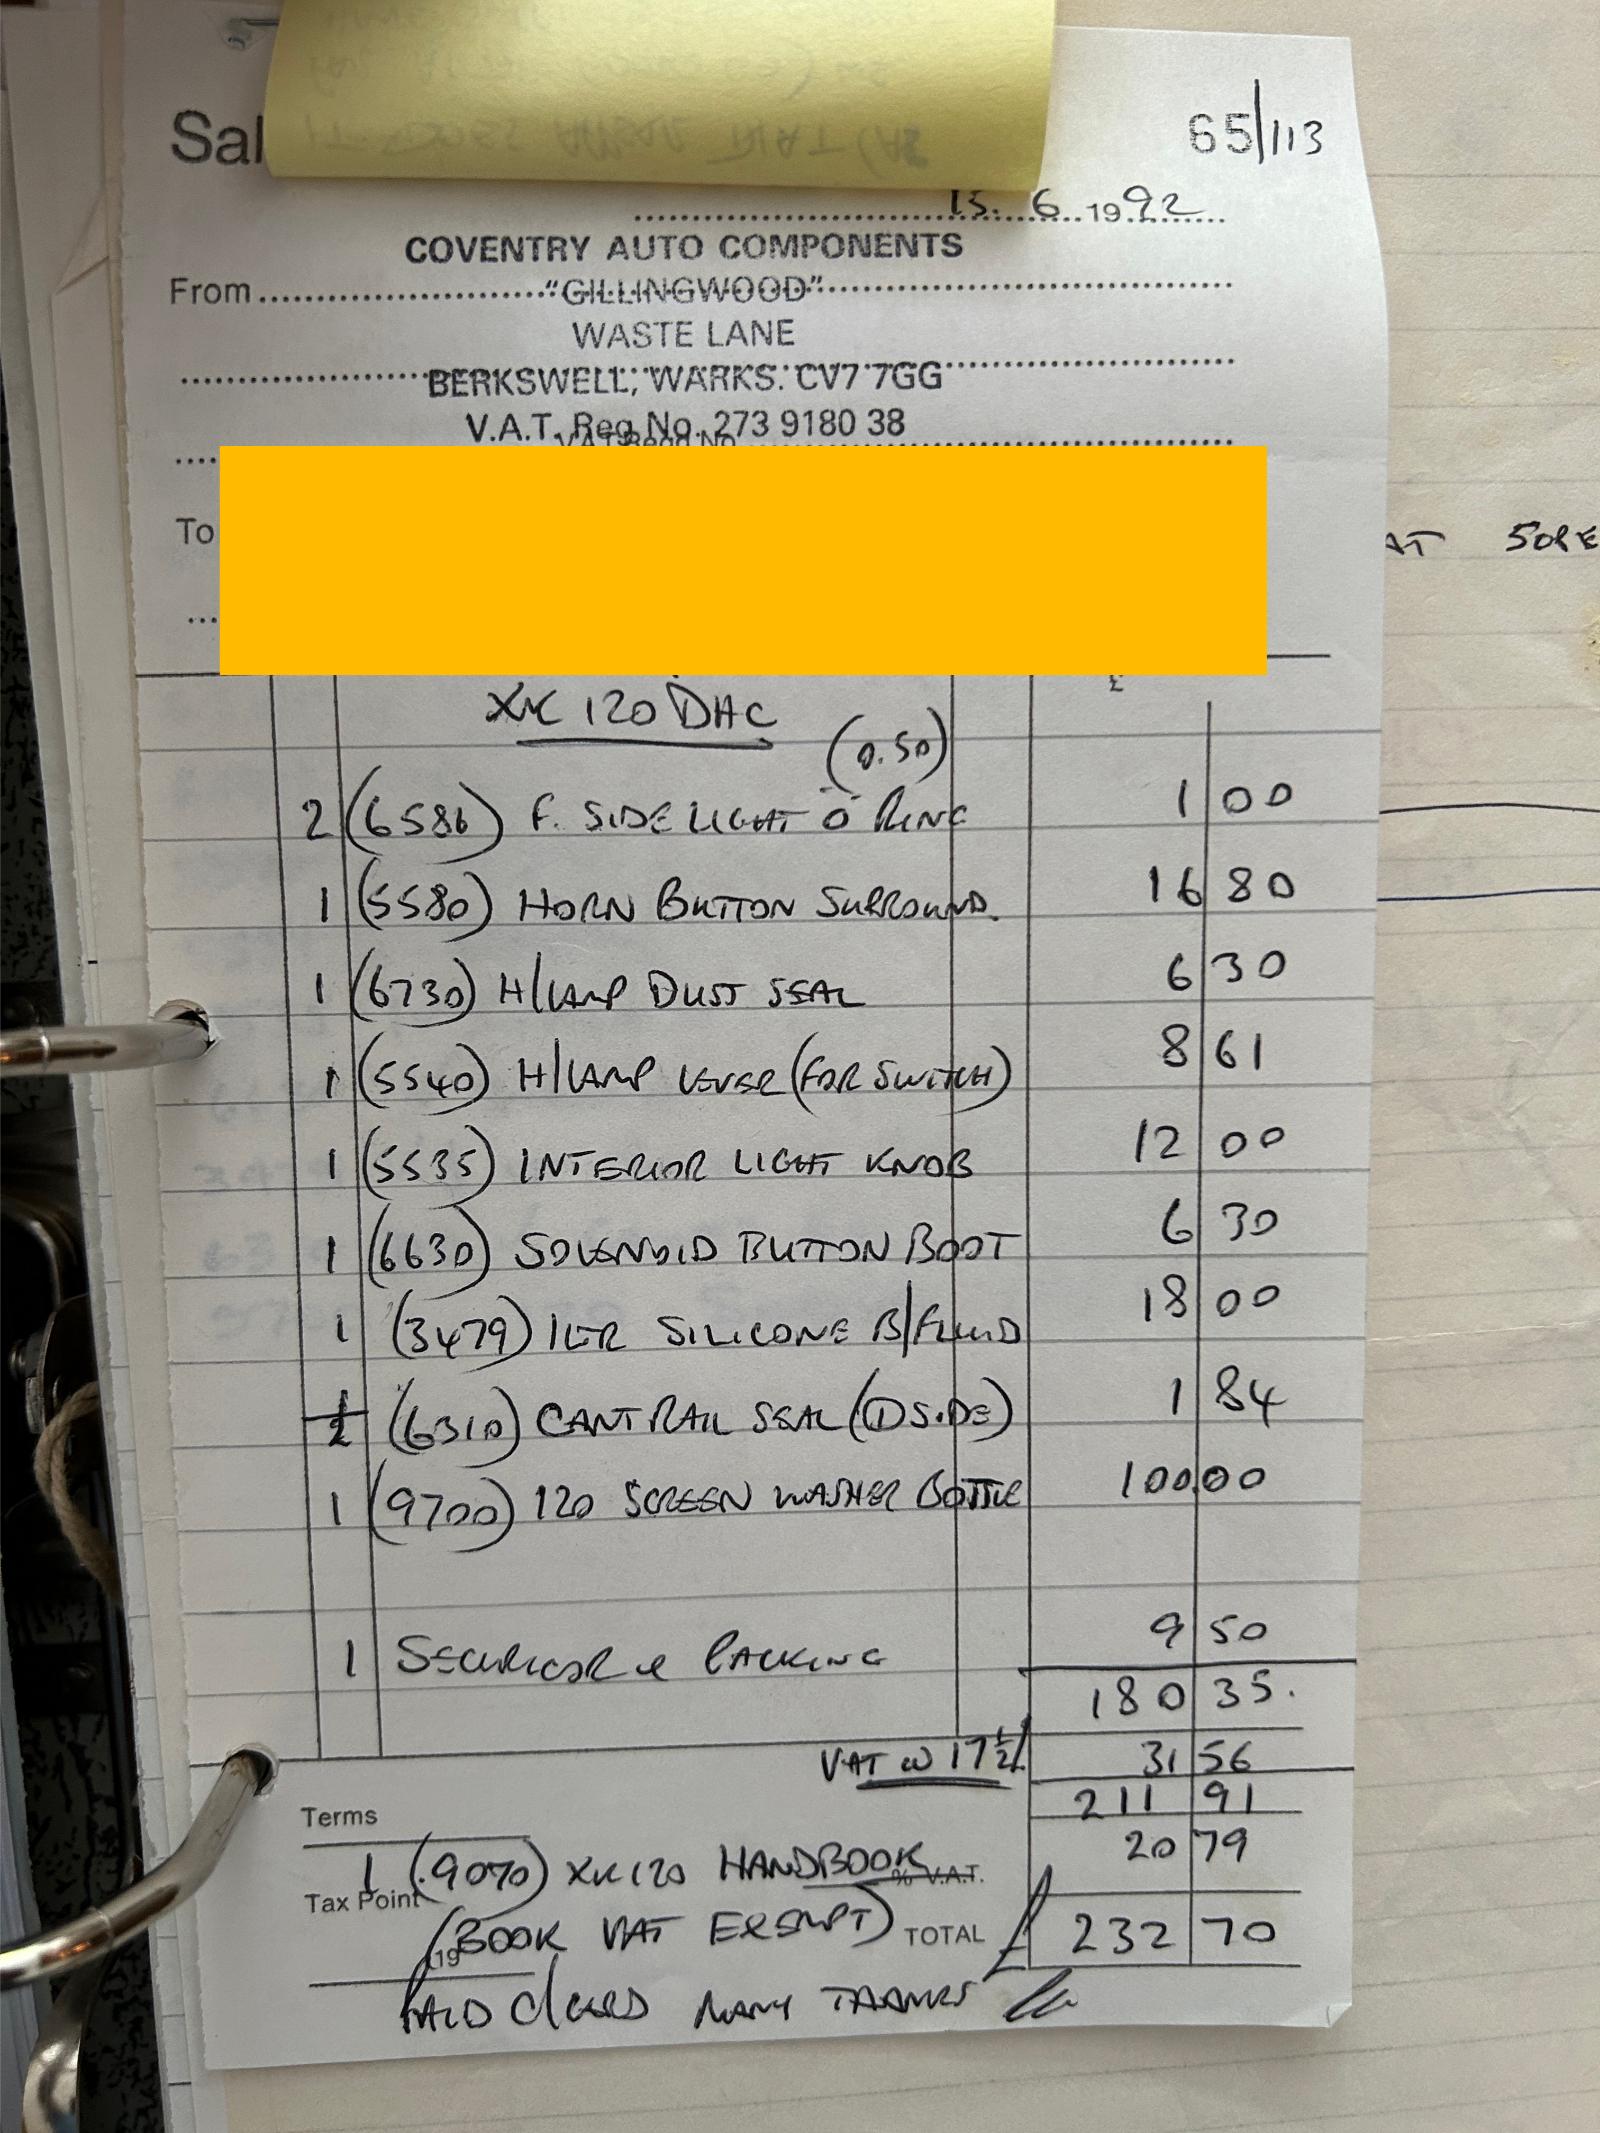 Sal
65/113
15. 6 1992
COVENTRY AUTO COMPONENTS
From "GILLINGWOOD"
WASTE LANE
BERKSWELL, WARKS. CV7 7GG
V.A.T. Reg No. 273 9180 38
V.A.T. Regd. No.
To
AT 50PE
£
XK 120 DHC
(0.50)
2 (6586) F. SIDE LIGHT 'O' RING 1 00
1 (5580) HORN BUTTON SURROUND. 16 80
1 (6730) H/LAMP DUST SEAL 6 30
1 (5540) H/LAMP LEVER (FOR SWITCH) 8 61
1 (5535) INTERIOR LIGHT KNOB 12 00
1 (6630) SOLENOID BUTTON BOOT 6 30
1 (3479) 1LTR SILICONE B/FLUID 18 00
1/2 (6310) CANTRAIL SEAL (D SIDE) 1 84
1 (9700) 120 SCREEN WASHER BOTTLE 100.00
1 SECURICOR & PACKING 9 50
180 35.
VAT @ 17 1/2 31 56
211 91
Terms
1 (9070) XK120 HANDBOOK 20 79
% V.A.T.
Tax Point
(BOOK VAT EXEMPT) TOTAL £ 232 70
19
PAID C/CARD MANY THANKS